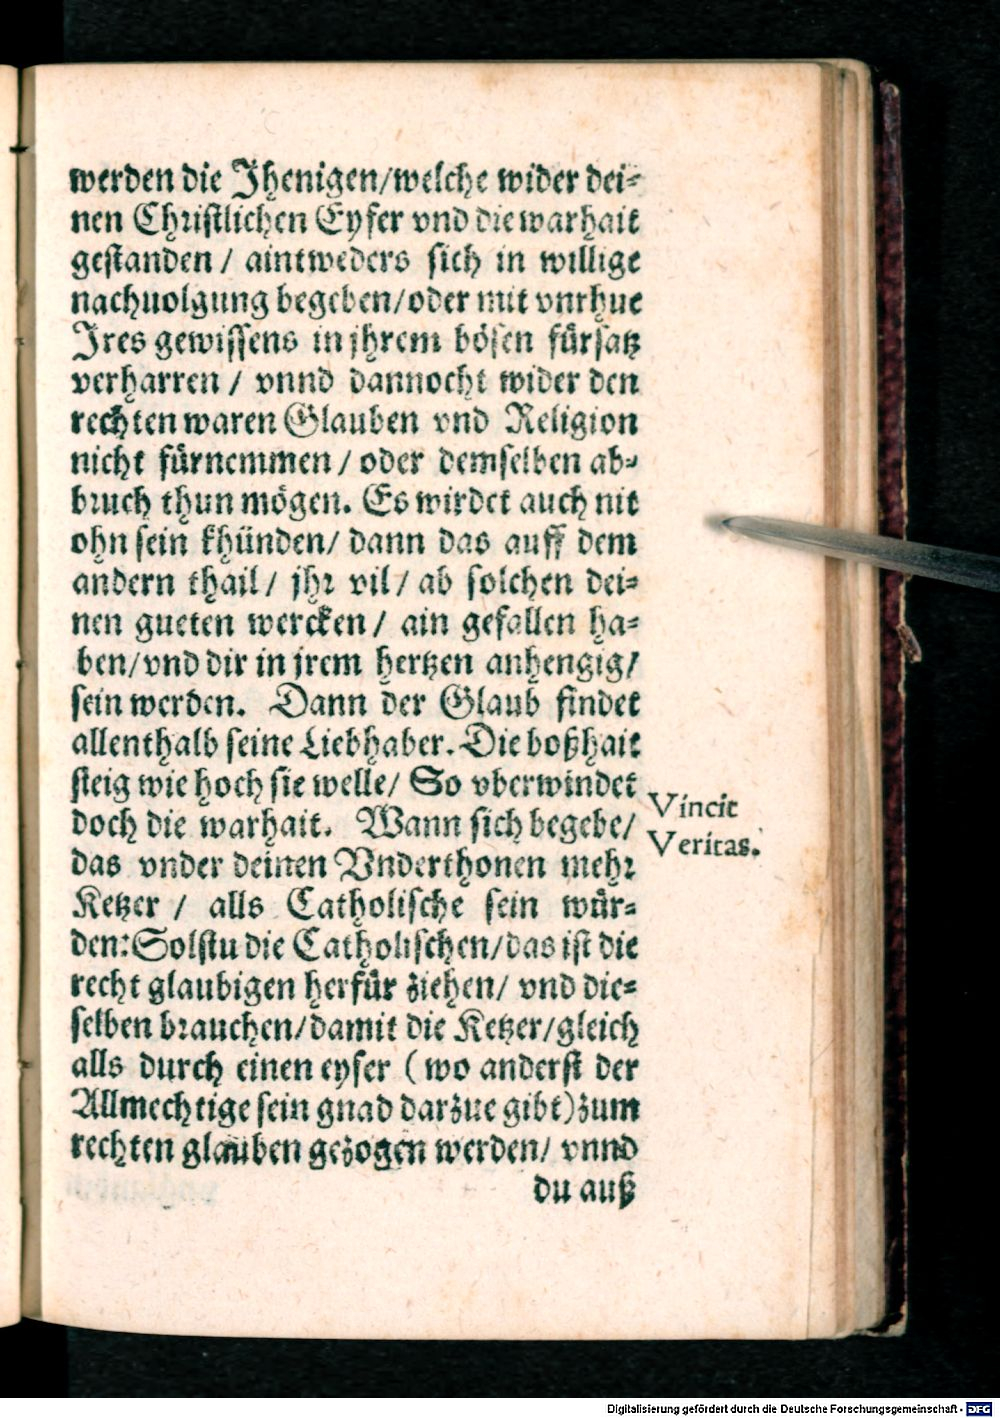 werden die Jhenigen/welche wider dei⸗
nen Christlichen Eyfer vnd die warhait
gestanden / aintweders sich in willige
nachuolgung begeben/oder mit vnrhue
Jres gewissens in jhrem bösen fürsatz
verharren / vnnd dannocht wider den
rechten waren Glauben vnd Religion
nicht fürnemmen / oder demselben ab⸗
bruch thun mögen. Es wirdet auch nit
ohn sein khünden/ dann das auff dem
andern thail / jhr vil / ab solchen dei⸗
nen gueten wercken / ain gefallen ha⸗
ben/vnd dir in jrem hertzen anhengig/
sein werden. Dann der Glaub findet
allenthalb seine Liebhaber. Die boßhait
steig wie hoch sie welle/ So vberwindet
doch die warhait. Wann sich begebe/
Vincit
Veritas.
das vnder deinen Vnderthonen mehr
Ketzer / alls Catholische sein wür⸗
den: Solstu die Catholischen/das ist die
recht glaubigen herfür ziehen/ vnd die⸗
selben brauchen/damit die Ketzer/gleich
alls durch einen eyfer (wo anderst der
Allmechtige sein gnad darzue gibt)zum
rechten glauben gezogen werden/ vnnd
du auß
Digitalisierung gefördert durch die Deutsche Forschungsgemeinschaft - DFG